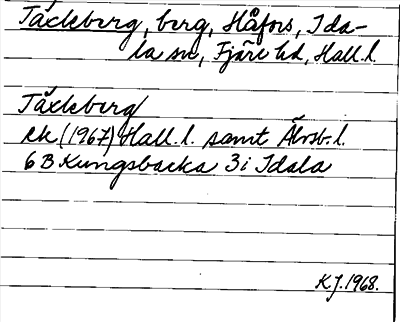 Tåxleberg, berg, Håfors, Ida-
la sn, Fjäre hd, Hall.l.
Tåxleberg
ek (1967) Hall.l. samt Älvsb.l.
6 B Kungsbacka 3i Idala
K.J. 1968.